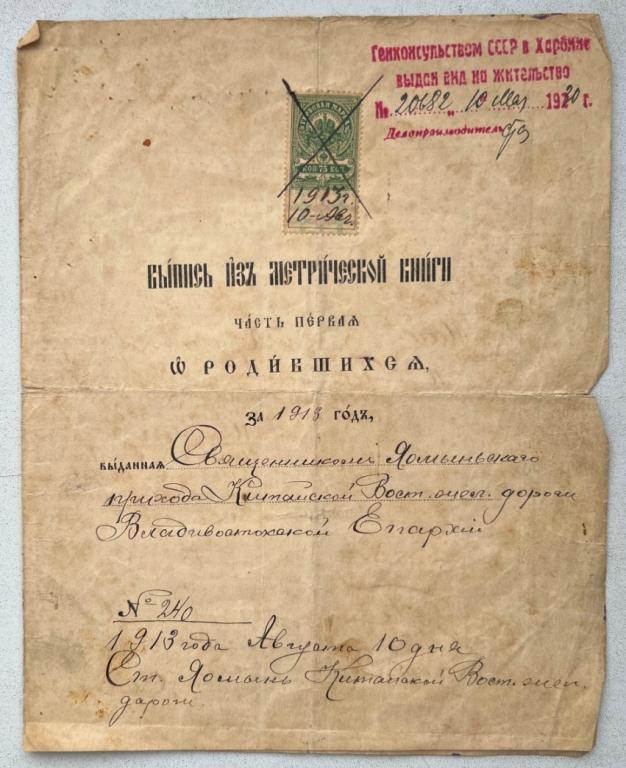 Генконсульством СССР в Харбине
выдан вид на жительство
№ 20682 „ 10 Мая 1930 г.
Делопроизводитель
КОП 75 КОП
1913 г.
10-Авг.
ВЫ́ПИСЬ И҆ЗЪ МЕТРИ́ЧЕСКОЙ КНИ́ГИ
ЧА́СТЬ ПЕ́РВАѦ
Ѡ҆ РОДИ́ВШИХСѦ,
ЗА 1913 ГО́ДЪ,
ВЫ́ДАННАѦ Священникомъ Яомыньскаго
прихода Китайской Вост. жел. дороги
Владивостокской Епархiи
№ 240
1913 года Августа 10 дня
Ст. Яомынь Китайской Вост. жел.
дороги.